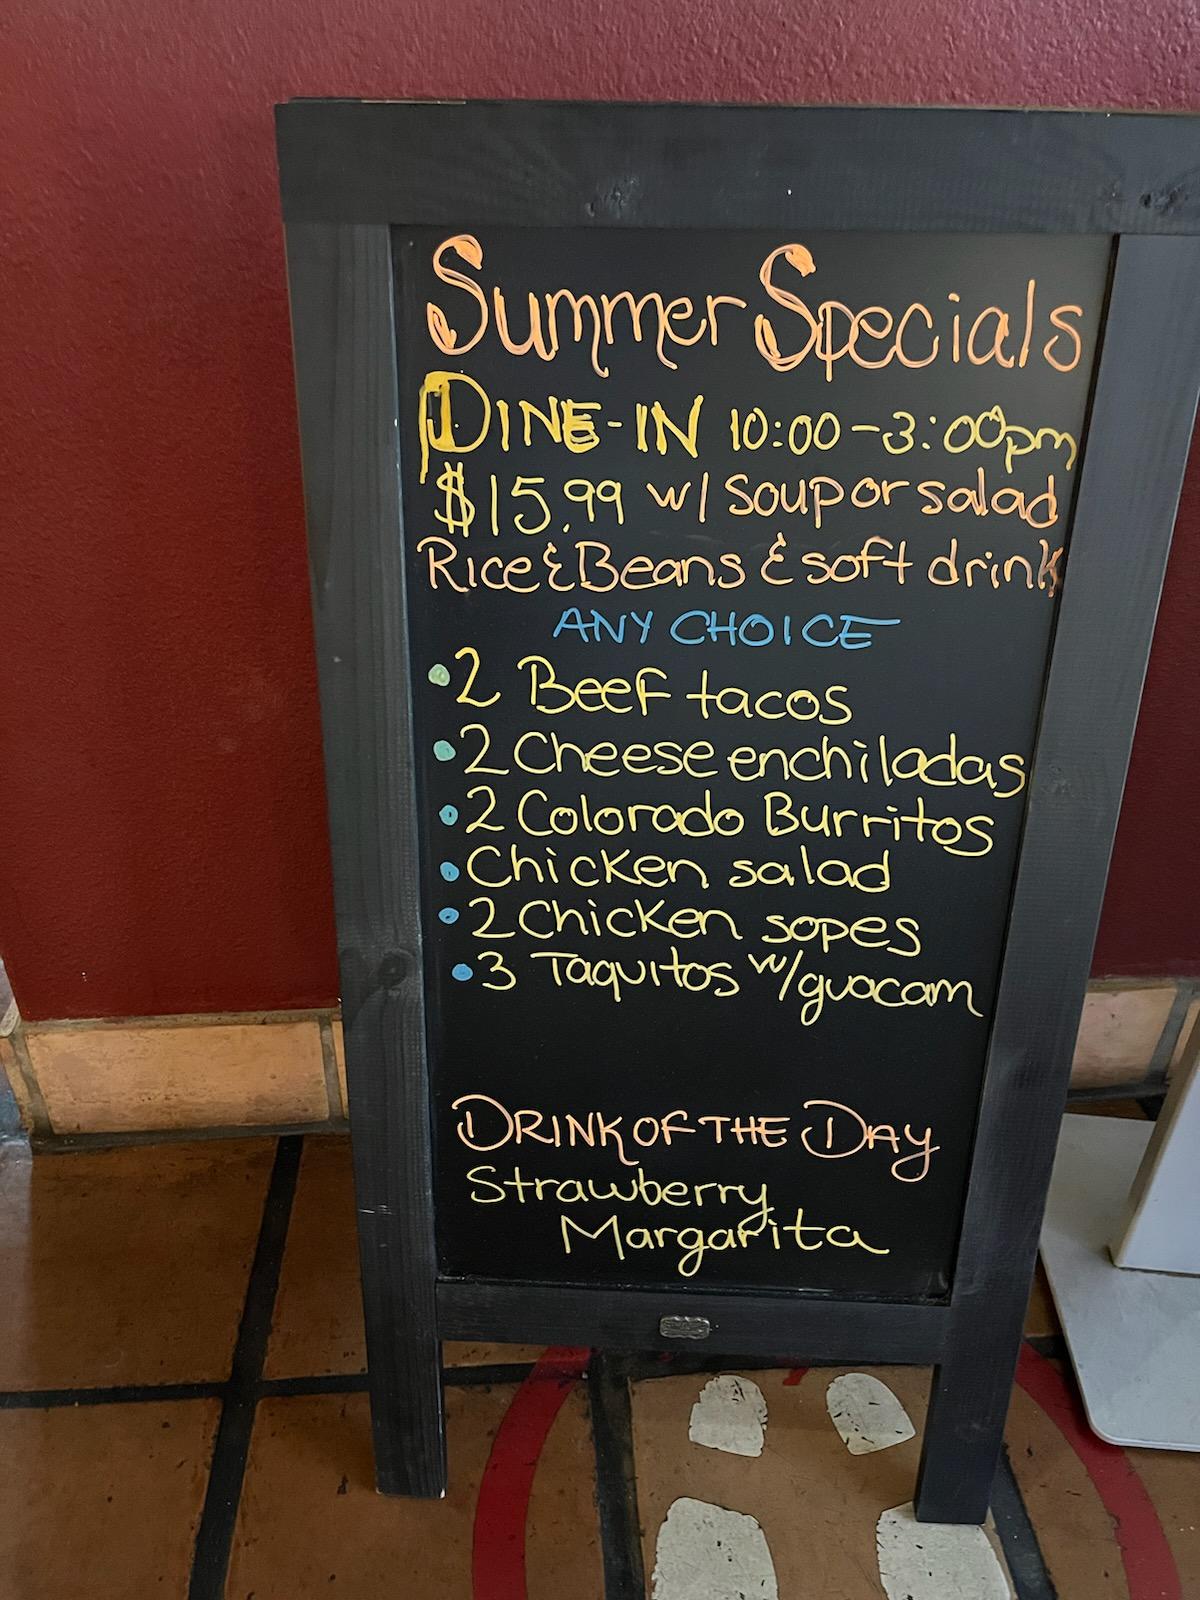 Summer Specials
DINE-IN 10:00-3:00pm
$15.99 w/ soup or salad
Rice & Beans & soft drink
ANY CHOICE
• 2 Beef tacos
• 2 Cheese enchiladas
• 2 Colorado Burritos
• Chicken salad
• 2 Chicken sopes
• 3 Taquitos w/guacam
DRINK OF THE DAY
Strawberry
Margarita